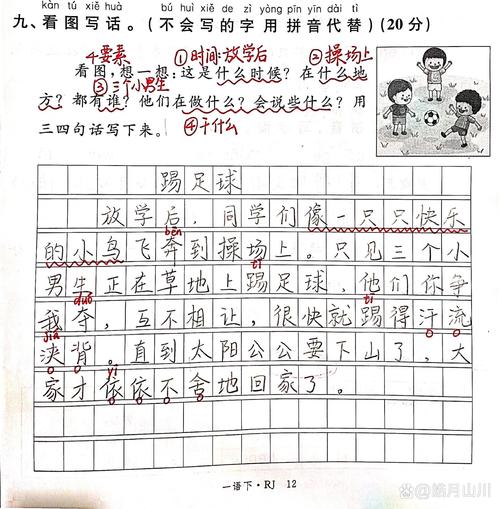 kàn tú xiě huà bú huì xiě de zì yòng pīn yīn dài tì
九、看图写话。(不会写的字用拼音代替)(20分)
4要素 ①时间:放学后 ②操场上
看图,想一想:这是什么时候?在什么地
③三个小男生
方?都有谁?他们在做什么?会说些什么?用
三四句话写下来。 ④干什么
踢足球
放学后,同学们像一只只快乐
bēn
的小鸟飞奔到操场上。只见三个小
tī
男生正在草地上踢足球,他们你争
duó tī
我夺,互不相让,很快就踢得汗流
jiā
浃背。直到太阳公公要下山了,大
yī
家才依依不舍地回家了。
一语下·RJ 12
皓月山川